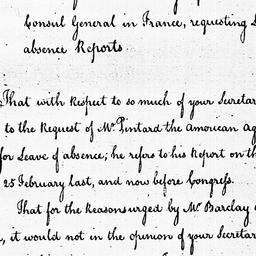 Consul General in France, requesting
absence Reports
That with Respect to so much of your Secretar
to the Request of Mr Pintard the American Ag
for Leave of absence; he refers to his Report on th
25 February last, and now before Congress.
That for the Reasons urged by Mr Barclay
it would not in the opinion of your Secretar